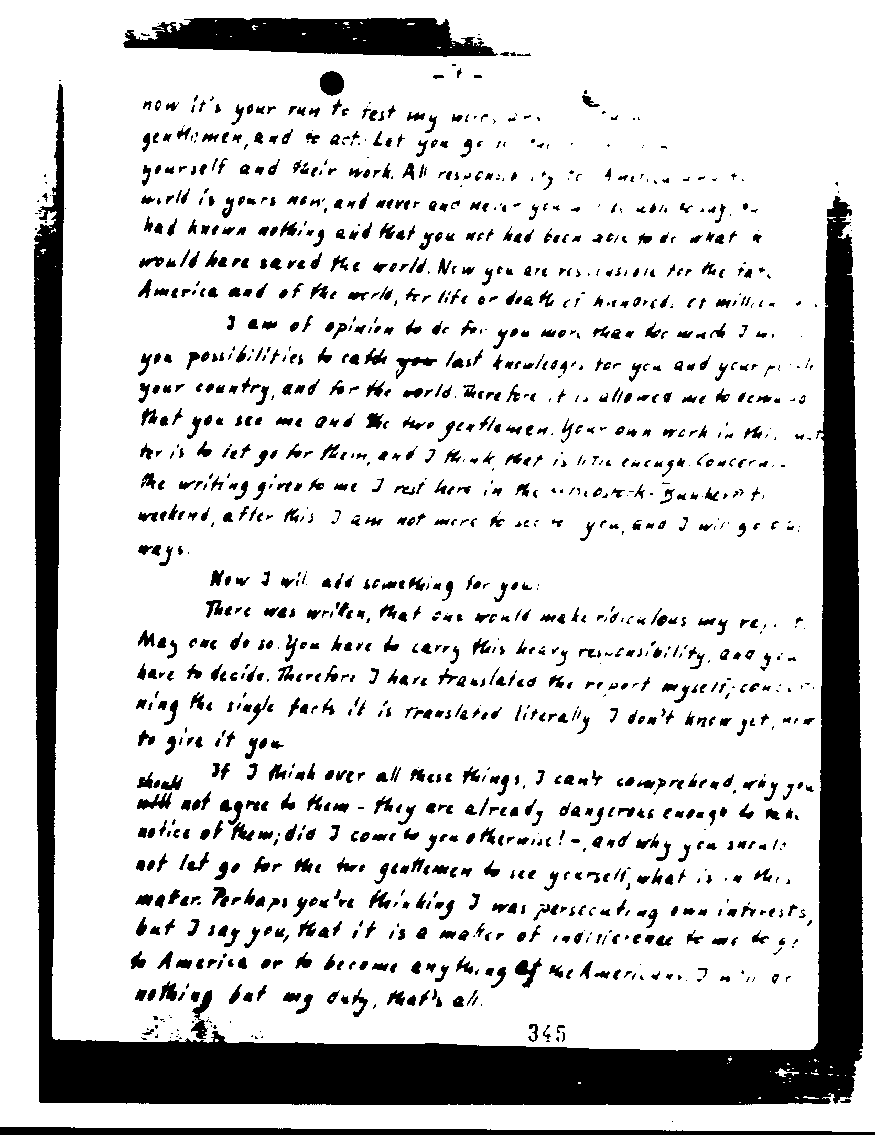 now it's your run to test my
gentlemen, and to act. Let you go
yourself and their work. All
world is yours now, and never and never you
had known nothing and that you not had been able to do what
would have saved the world. Now you are responsible for the
America and of the world, for life or death of hundreds of
I am of opinion to do for you more than too much I
you possibilities to catch last knowledges for you and your
your country, and for the world. Therefore it is allowed me to demand
that you see me and the two gentlemen. Your own work in this
ter is to let go for them, and I think, that is little enough.
the writing given to me I rest here in the
weekend, after this I am not more to see you, and I will go
ways.
Now I will add something for you:
There was written, that one would make ridiculous my
May one do so. You have to carry this heavy responsibility, and you
have to decide. Therefore I have translated the report myself;
ning the single facts it is translated literally I don't know yet,
to give it you
should
If I think over all these things, I can't comprehend, why you
not agree to them - they are already dangerous enough to take
notice of them; did I come to you otherwise! -, and why you should
not let go for the two gentlemen to see yourself, what is in this
mater. Perhaps you're thinking I was persecuting own interests,
but I say you, that it is a matter of indifference to me to go
to America or to become anything of the Americans. I
nothing but my duty, that's all.
345